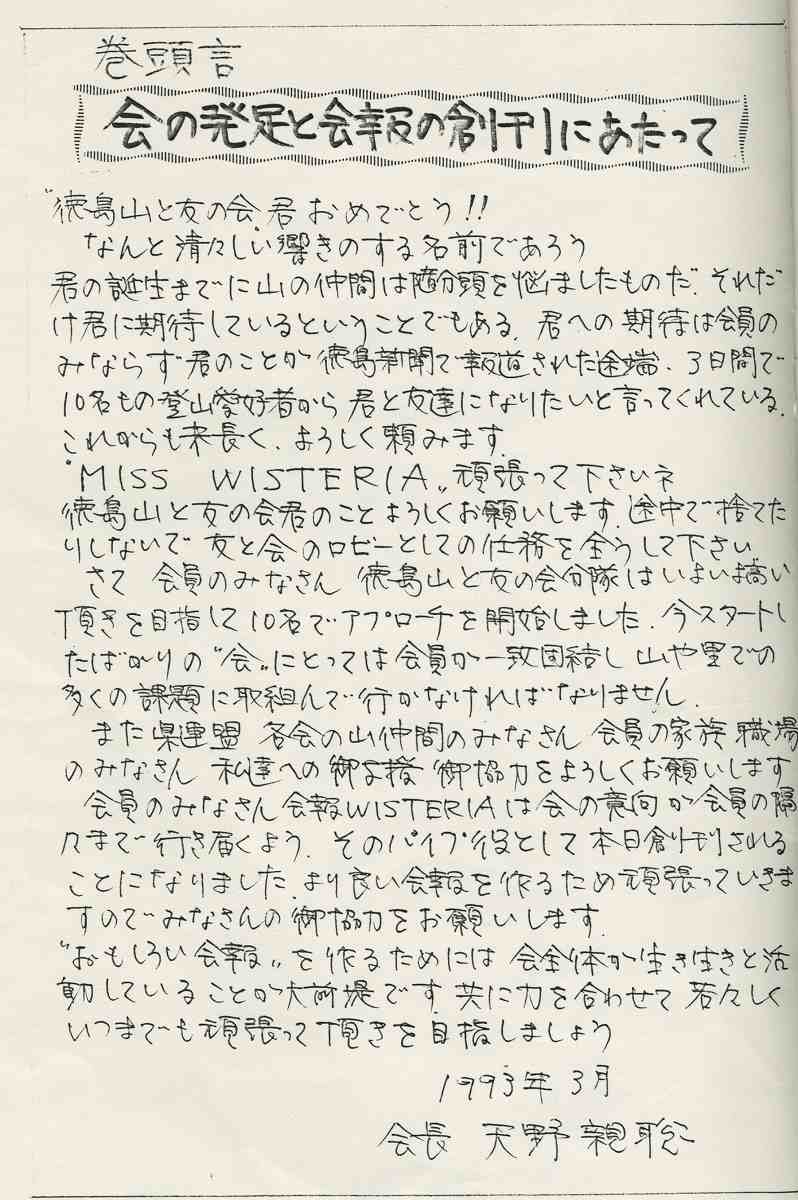 巻頭言
会の発足と会報の創刊にあたって
"徳島山と友の会"君 おめでとう!!
なんと清々しい響きのする名前であろう
君の誕生までに山の仲間は随分頭を悩ましたものだ.それだ
け君に期待しているということでもある.君への期待は会員の
みならず君のことが徳島新聞で報道された途端、3日間で
10名もの登山愛好者から君と友達になりたいと言ってくれている.
これからも末長く、ようしく頼みます.
"MISS WISTERIA"頑張って下さいネ
徳島山と友の会君のことようしくお願いします.途中で捨てた
りしないで 友と会のロビーとしての任務を全うして下さい
さて 会員のみなさん 徳島山と友の会分隊はいよいよ高い
頂きを目指して10名でアプローチを開始しました.今スタートし
たばかりの"会"にとっては会員が一致団結し 山や里での
多くの課題に取組んで行かなければなりません.
また県連盟 各会の山仲間のみなさん 会員の家族 職場
のみなさん 私達への御支援 御協力をようしくお願いします
会員のみなさん 会報WISTERIAは会の意向が会員の隅
々まで行き届くよう.そのパイプ役として本日創刊される
ことになりました.より良い会報を作るため頑張っていきま
すのでみなさんの御協力をお願いします.
"おもしろい会報"を作るためには 会全体が生き生きと活
動していることが大前提です.共に力を合わせて 若々しく
いつまでも頑張って頂きを目指しましょう
1993年3月
会長 天野 親聡